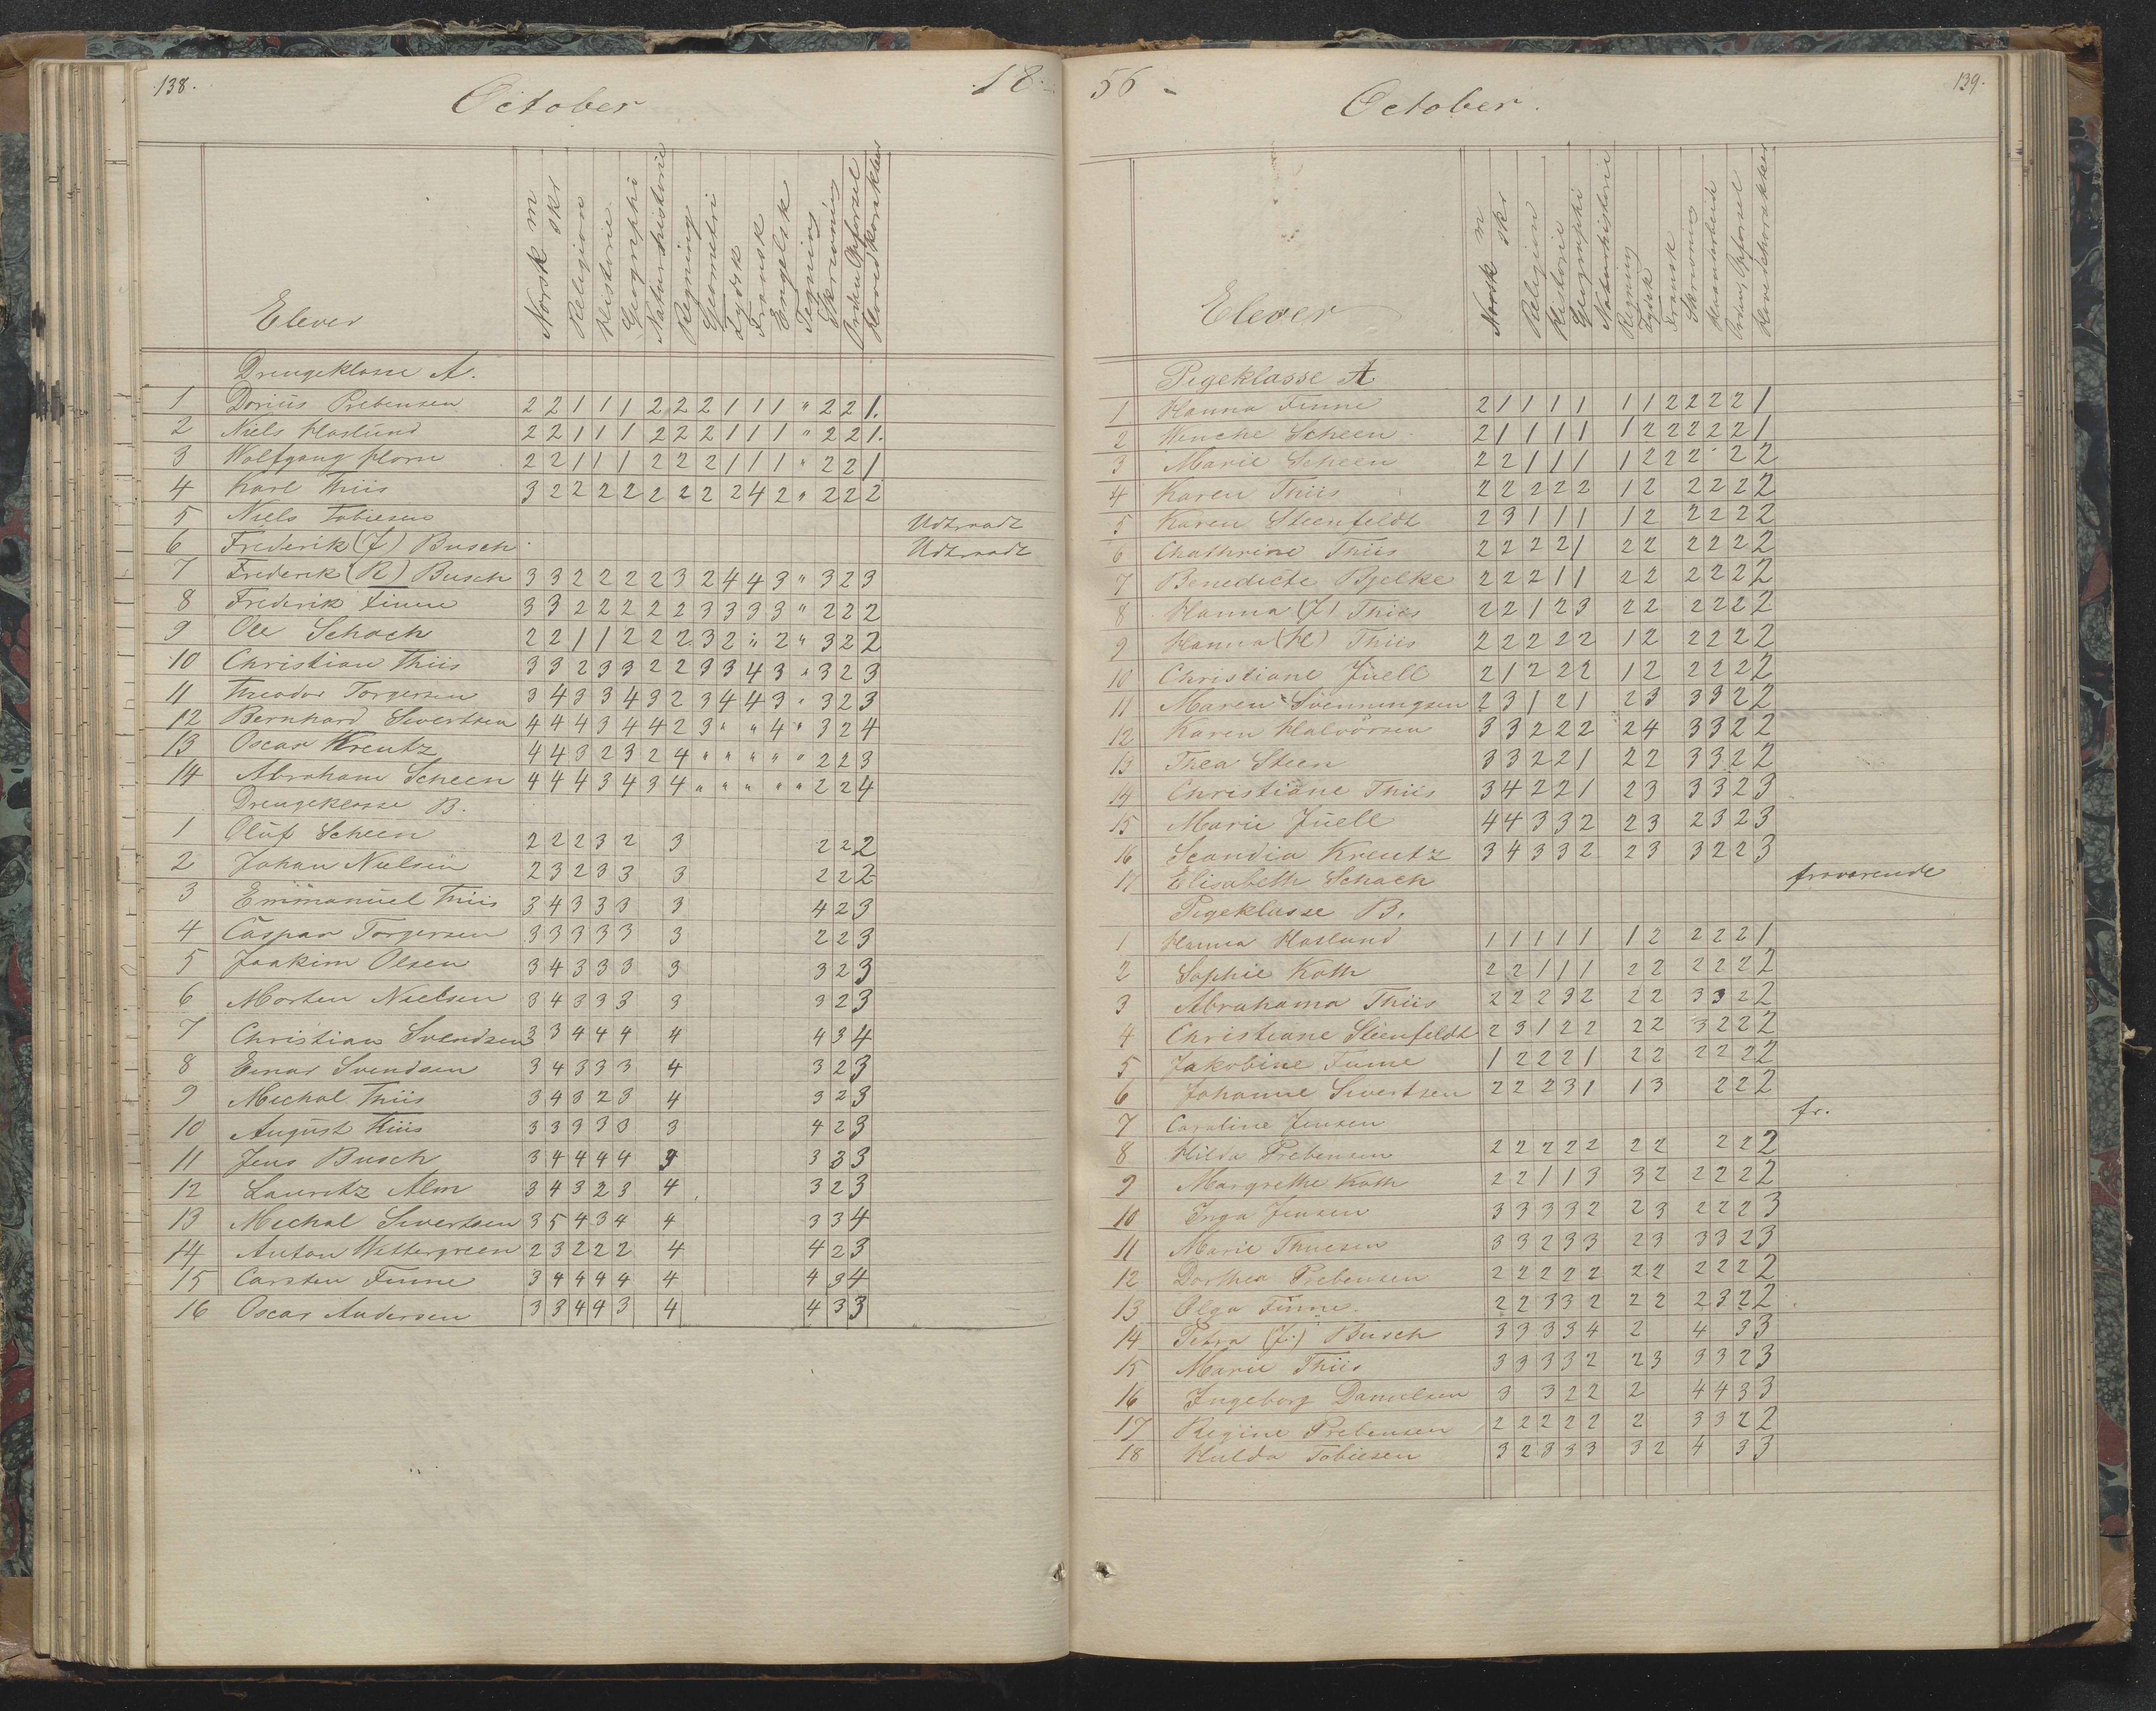 138.
October
18
Elever
Norsk m
skr
Religion
Historie
Geographi
Naturhistorie
Regning
Geometri
Tydsk
Fransk
Engelsk
Tegning
Skrivning
Orden, Opførsel
Hovedkarakter
Drengeklasse A.
1 Dorius Prebensen 2 2 1 1 1 2 2 2 1 1 1 " 2 2 1.
2 Niels Haslund 2 2 1 1 1 2 2 2 1 1 1 " 2 2 1.
3 Wolfgang Horn 2 2 1 1 1 2 2 2 1 1 1 " 2 2 1
4 Karl Thiis 3 2 2 2 2 2 2 2 2 4 2 " 2 2 2
5 Niels Tobiesen Udtraadt
6 Frederik (J) Busch Udtraadt
7 Frederik (R) Busch 3 3 2 2 2 2 2 3 2 4 4 3 " 3 2 3
8 Frederik Finne 3 3 2 2 2 2 2 2 3 3 3 3 " 2 2 2
9 Ole Schach 2 2 1 1 2 2 2 2 3 2 " 2 " 3 2 2
10 Christian Thiis 3 3 2 3 3 2 2 3 3 4 3 " 3 2 3
11 Theodor Torgersen 3 4 3 3 4 3 2 3 4 4 3 " 3 2 3
12 Bernhard Sivertsen 4 4 4 3 4 4 2 3 " " 4 " 3 2 4
13 Oscar Kreutz 4 4 3 2 3 2 4 " " " " " 2 2 3
14 Abraham Scheen 4 4 4 3 4 3 4 " " " " " 2 2 4
Drengeklasse B.
1 Oluf Scheen 2 2 2 3 2 3 2 2 2
2 Johan Nielsen 2 3 2 3 3 3 2 2 2
3 Emmanuel Thiis 3 4 3 3 3 3 4 2 3
4 Caspar Torgersen 3 3 3 3 3 3 2 2 3
5 Joakim Olsen 3 4 3 3 3 3 3 2 3
6 Morten Nielsen 3 4 3 3 3 3 3 2 3
7 Christian Svendsen 3 3 4 4 4 4 4 3 4
8 Einar Svendsen 3 4 3 3 3 4 3 2 3
9 Michal Thiis 3 4 3 2 3 4 3 2 3
10 August Thiis 3 3 3 3 3 3 4 2 3
11 Jens Busch 3 4 4 4 4 4 3 3 3
12 Lauritz Alm 3 4 3 2 3 4 3 2 3
13 Michal Sivertsen 3 5 4 3 4 4 3 3 4
14 Anton Wettergreen 2 3 2 2 2 4 4 2 3
15 Carsten Finne 3 4 4 4 4 4 4 3 4
16 Oscar Andersen 3 3 4 4 3 4 4 3 3
56
October.
139.
Elever
Norsk m
skr
Religion
Historie
Geographi
Naturhistorie
Regning
Tydsk
Fransk
Skrivning
Haandarbeide
Orden, Opførsel
Hovedcharakter
Pigeklasse A
1 Hanna Finne 2 1 1 1 1 1 1 2 2 2 2 1
2 Wenche Scheen 2 1 1 1 1 1 2 2 2 2 2 1
3 Marie Scheen 2 2 1 1 1 1 2 2 2 2 2
4 Karen Thiis 2 2 2 2 2 1 2 2 2 2 2
5 Karen Steenfeldt 2 3 1 1 1 1 2 2 2 2 2
6 Chathrine Thiis 2 2 2 2 1 2 2 2 2 2 2
7 Benedicte Bjelke 2 2 2 1 1 2 2 2 2 2 2
8 Hanna (J) Thiis 2 2 1 2 3 2 2 2 2 2 2
9 Hanna (H) Thiis 2 2 2 2 2 1 2 2 2 2 2
10 Christiane Juell 2 1 2 2 2 1 2 2 2 2 2
11 Maren Svenningsen 2 3 1 2 1 2 3 3 3 2 2
12 Karen Halvorsen 3 3 2 2 2 2 4 3 3 2 2
13 Thea Steen 3 3 2 2 1 2 2 3 3 2 2
14 Christiane Thiis 3 4 2 2 1 2 3 3 3 2 3
15 Marie Juell 4 4 3 3 2 2 3 2 3 2 3
16 Scandia Kreutz 3 4 3 3 2 2 3 3 2 2 3
17 Elisabeth Schach fraværende
Pigeklasse B.
1 Hanna Haslund 1 1 1 1 1 1 2 2 2 2 1
2 Sophie Koth 2 2 1 1 1 2 2 2 2 2 2
3 Abrahama Thiis 2 2 2 3 2 2 2 3 3 2 2
4 Christiane Steenfeldt 2 3 1 2 2 2 2 3 2 2 2
5 Jakobine Finne 1 2 2 2 1 2 2 2 2 2 2
6 Johanne Sivertsen 2 2 2 3 1 1 3 2 2 2
7 Caroline Jensen fr.
8 Hilda Prebensen 2 2 2 2 2 2 2 2 2 2
9 Margrethe Koth 2 2 1 1 3 3 2 2 2 2 2
10 Inga Jensen 3 3 3 3 2 2 3 2 2 2 3
11 Marie Thuesen 3 3 2 3 3 2 3 3 3 2 3
12 Dorthea Prebensen 2 2 2 2 2 2 2 2 2 2 2
13 Olga Finne. 2 2 3 3 2 2 2 2 3 2 2
14 Petra (J.) Busch 3 3 3 3 4 2 4 3 3
15 Marie Thiis 3 3 3 3 2 2 3 3 3 2 3
16 Ingeborg Danielsen 3 3 2 2 2 4 4 3 3
17 Regine Prebensen 2 2 2 2 2 2 3 3 2 2
18 Hulda Tobiesen 3 2 3 3 3 3 2 4 3 3